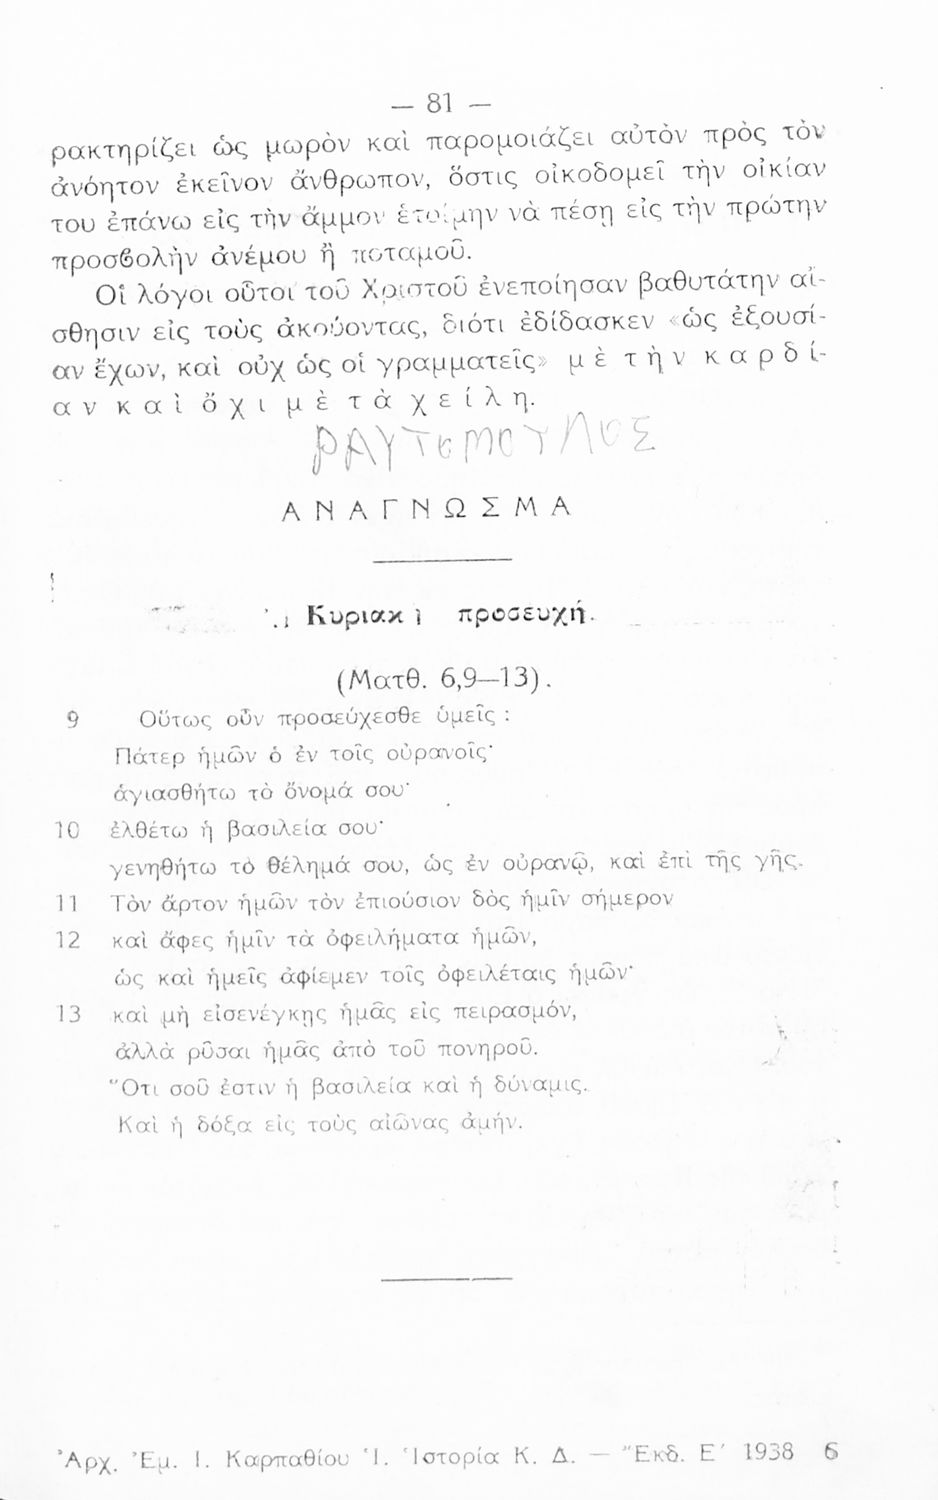 — 81 —
ρακτηρίζει ὡς μωρὸν καὶ παρομοιάζει αὐτὸν πρὸς τὸν
ἀνόητον ἐκεῖνον ἄνθρωπον, ὅστις οἰκοδομεῖ τὴν οἰκίαν
του ἐπάνω εἰς τὴν ἄμμον ἑτοίμην νὰ πέσῃ εἰς τὴν πρώτην
προσβολὴν ἀνέμου ἢ ποταμοῦ.
Οἱ λόγοι οὗτοι τοῦ Χριστοῦ ἐνεποίησαν βαθυτάτην αἴ-
σθησιν εἰς τοὺς ἀκούοντας, διότι ἐδίδασκεν «ὡς ἐξουσί-
αν ἔχων, καὶ οὐχ ὡς οἱ γραμματεῖς» μ ὲ τ ὴ ν κ α ρ δ ί-
α ν κ α ὶ ὄ χ ι μ ὲ τ ὰ χ ε ί λ η.
Α Ν Α Γ Ν Ω Σ Μ Α
Κυριακὴ προσευχή.
(Ματθ. 6,9—13).
9 Οὕτως οὖν προσεύχεσθε ὑμεῖς :
Πάτερ ἡμῶν ὁ ἐν τοῖς οὐρανοῖς·
ἁγιασθήτω τὸ ὄνομά σου·
10 ἐλθέτω ἡ βασιλεία σου·
γενηθήτω τὸ θέλημά σου, ὡς ἐν οὐρανῷ, καὶ ἐπὶ τῆς γῆς.
11 Τὸν ἄρτον ἡμῶν τὸν ἐπιούσιον δὸς ἡμῖν σήμερον
12 καὶ ἄφες ἡμῖν τὰ ὀφειλήματα ἡμῶν,
ὡς καὶ ἡμεῖς ἀφίεμεν τοῖς ὀφειλέταις ἡμῶν·
13 καὶ μὴ εἰσενέγκῃς ἡμᾶς εἰς πειρασμόν,
ἀλλὰ ρῦσαι ἡμᾶς ἀπὸ τοῦ πονηροῦ.
Ὅτι σοῦ ἐστιν ἡ βασιλεία καὶ ἡ δύναμις.
Καὶ ἡ δόξα εἰς τοὺς αἰῶνας ἀμήν.
Ἀρχ. Ἐμ. Ι. Καρπαθίου Ἱ. Ἱστορία Κ. Δ. — Ἔκδ. Ε΄ 1938 6